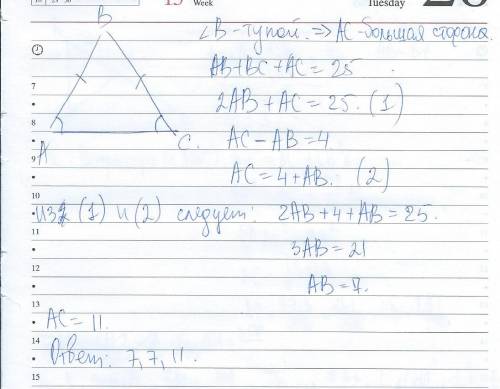 15 Week
Tuesday 28
B
A
C.
∠B-тупой. ⇒ AC-большая сторона.
AB+BC+AC=25
2AB+AC=25. (1)
AC-AB=4
AC=4+AB. (2)
из (1) и (2) следует: 2AB+4+AB=25.
3AB=21
AB=7.
AC=11.
Ответ: 7,7,11.
7
8
9
10
11
12
13
14
15